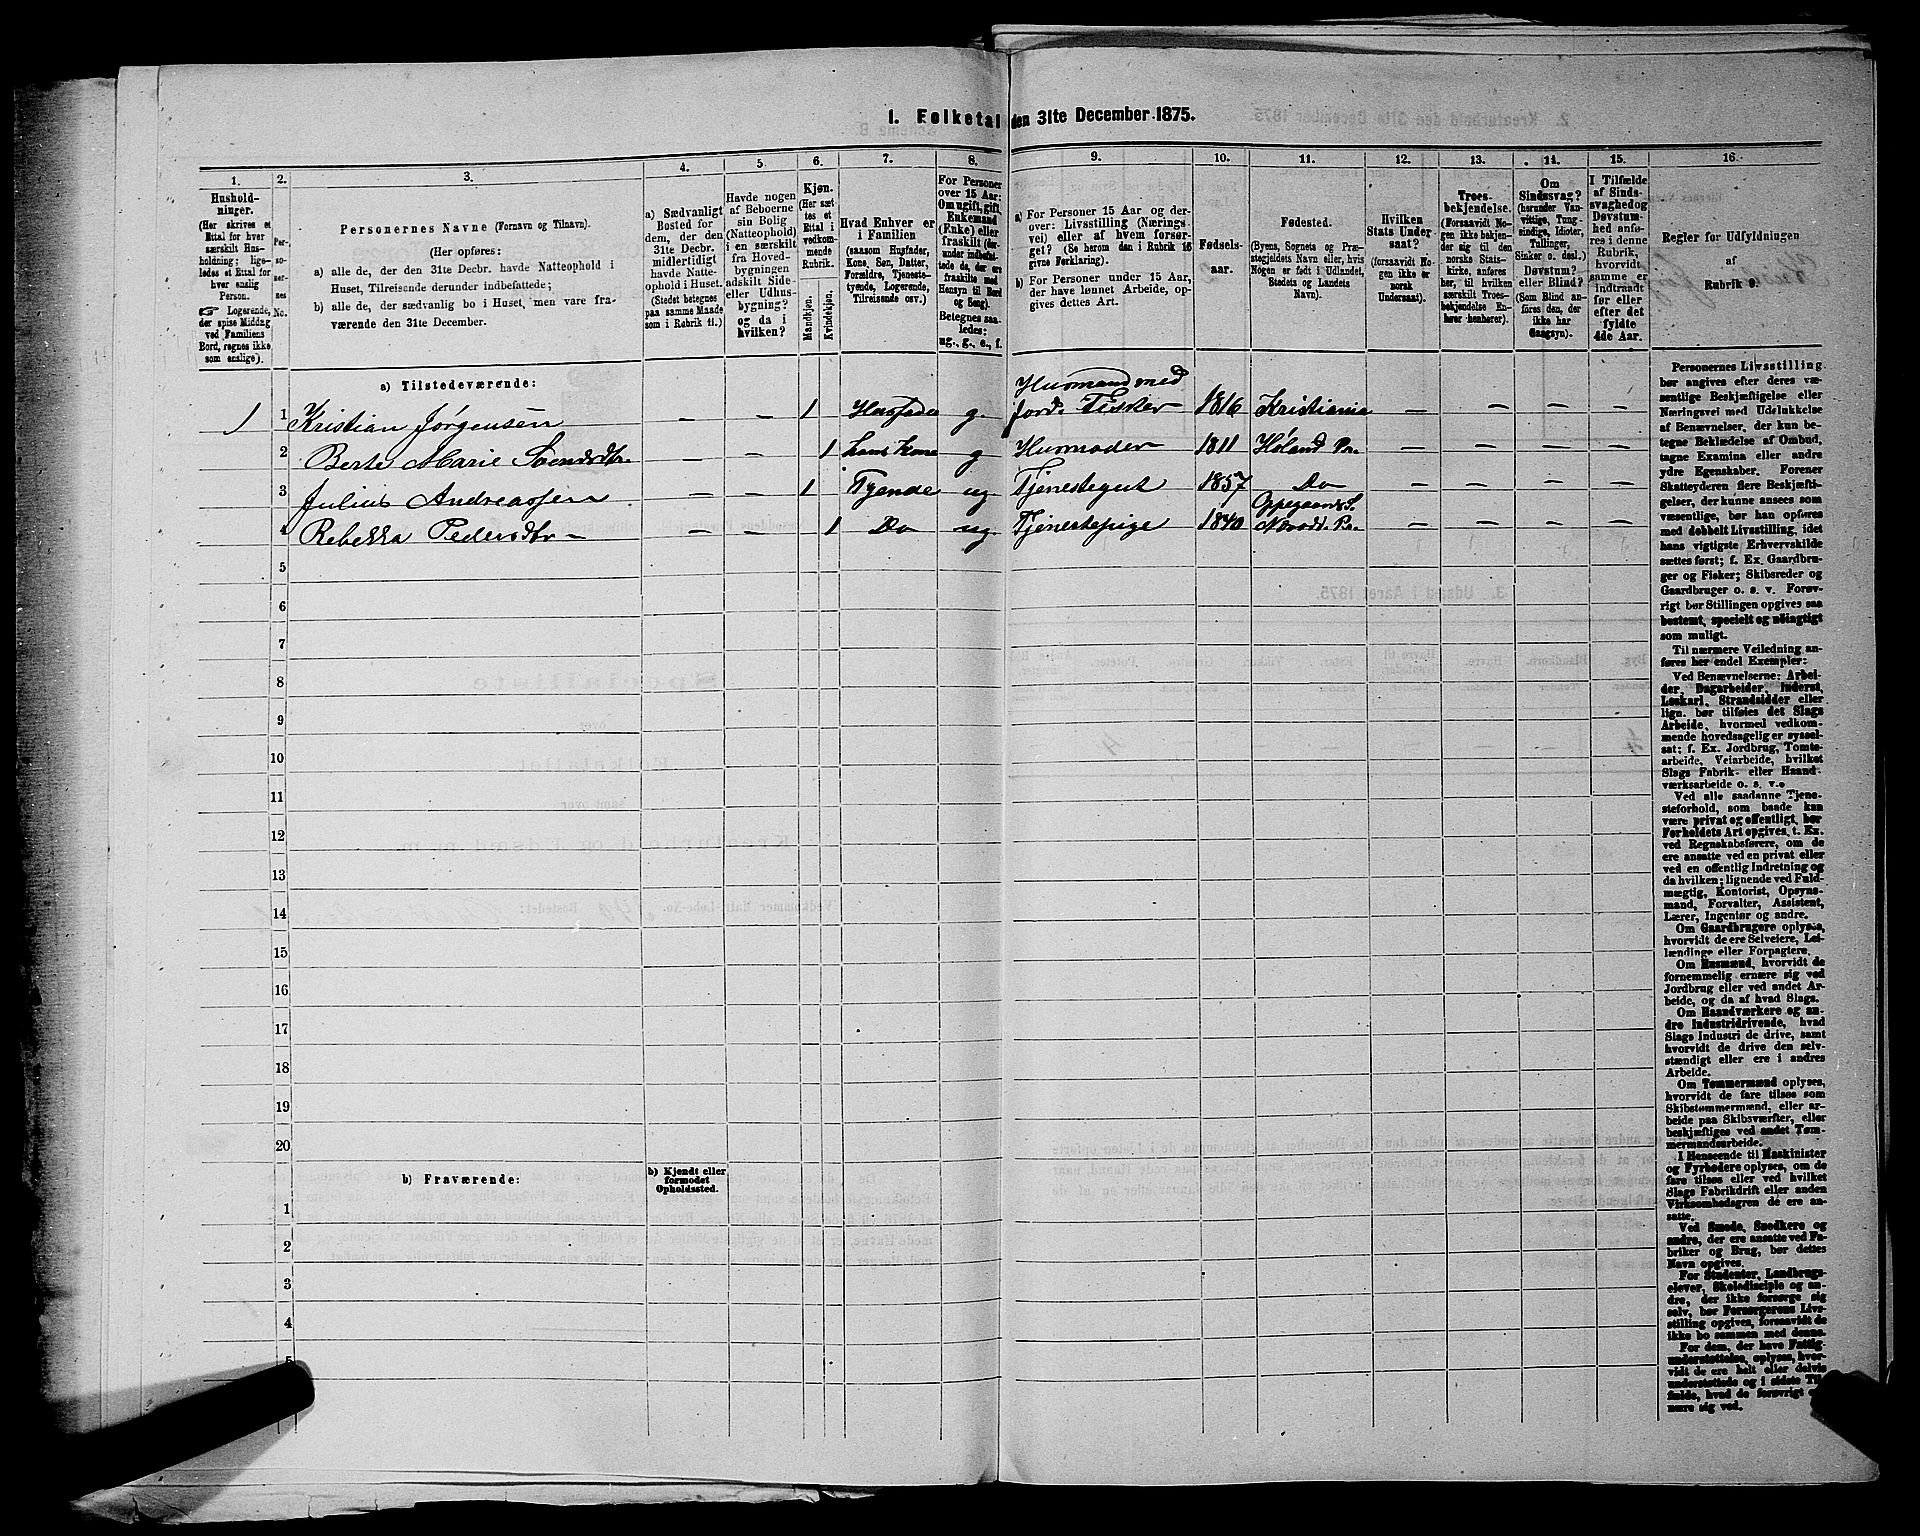 I. Folketal den 31te December 1875.
1.
2.
3.
4.
5.
6.
7.
8.
9.
10.
11.
12.
13.
14.
15.
16.
Hushold-
ninger.
(Her skrives et
Ettal for hver
særskilt Hus-
holdning; lige-
ledes et Ettal for
hver enslig
Person.
☞ Logerende,
der spise Middag
ved Familiens
Bord, regnes ikke
som enslige).
Per-
so-
ner-
nes
No.
Personernes Navne (Fornavn og Tilnavn).
(Her opføres:
a) alle de, der den 31te Decbr. havde Natteophold i
Huset, Tilreisende derunder indbefattede;
b) alle de, der sædvanlig bo i Huset, men vare fra-
værende den 31te December.
a) Sædvanligt
Bosted for
dem, der den
31te Decbr.
midlertidigt
havde Natte-
ophold i Huset.
(Stedet betegnes
paa samme Maade
som i Rubrik 11.)
Havde nogen
af Beboerne
sin Bolig
(Natteophold)
i en særskilt
fra Hoved-
bygningen
adskilt Side-
eller Udhus-
bygning?
og da i
hvilken?
Kjøn.
(Her sæt-
tes et
Ettal i
vedkom-
mende
Rubrik.
Mandkjøn.
Kvindekjøn.
Hvad Enhver er
i Familien
(saasom Husfader,
Kone, Søn, Datter,
Forældre, Tjeneste-
tyende, Logerende,
Tilreisende osv.)
For Personer
over 15 Aar:
Om ugift, gift,
Enkemand
(Enke) eller
fraskilt (der-
under indbefat-
tede de, der ere
fraskilte med
Hensyn til Bord
og Seng).
Betegnes saa-
ledes:
ug., g., e., f.
a) For Personer 15 Aar og der-
over: Livsstilling (Nærings-
vei) eller af hvem forsør-
get? (Se herom den i Rubrik 16
givne Forklaring.)
b) For Personer under 15 Aar,
der have lønnet Arbeide, op-
gives dettes Art.
Fødsels-
aar.
Fødested.
(Byens, Sognets og Præ-
stegjeldets Navn eller, hvis
Nogen er født i Udlandet,
Stedets og Landets
Navn).
Hvilken
Stats Under-
saat?
(forsaavidt No-
gen ikke er
norsk
Undersaat).
Troes-
bekjendelse.
(Forsaavidt No-
gen ikke bekjen-
der sig til den
norske Stats-
kirke, anføres
her, til hvilken
særskilt Troes-
bekjendelse En-
hver henhører).
Om
Sindssvag?
(herunder Van-
vittige, Tung-
sindige, Idioter,
Tullinger,
Sinker o. desl.)
Døvstum?
eller Blind?
(Som Blind an-
føres den, der
ikke har
Gangsyn).
I Tilfælde
af Sinds-
svaghed og
Døvstum-
hed anfø-
res i denne
Rubrik,
hvorvidt
samme er
indtraadt
før eller
efter det
fyldte
4de Aar.
Regler for Udfyldningen
af
Rubrik 9.
a) Tilstedeværende:
1 1 Kristian Jørgensen — — 1 Husfader g. Husmand med
Jord. Fisker 1816 Kristiania — — — —
2 Berte Marie Svendsdtr. — — 1 hans Kone g Husmoder 1811 Høland Pr. — — — —
3 Julius Andreassen — — 1 Tyende ug. Tjenestegut 1857 Do — — — —
4 Rebekka Pedersdtr — — — 1 Do ug. Tjenestepige 1840 Oppegaard S.
Nesodd. Pr. — — — —
5
6
7
8
9
10
11
12
13
14
15
16
17
18
19
20
b) Fraværende:
b) Kjendt eller
formodet
Opholdssted.
1
2
3
4
5
Personernes Livsstilling
bør angives efter deres væ-
sentlige Beskjæftigelse eller
Næringsvei med Udelukkelse
af Benævnelser, der kun be-
tegne Beklædelse af Ombud,
tagne Examina eller andre
ydre Egenskaber. Forener
Skatteyderen flere Beskjæfti-
gelser, der kunne ansees som
væsentlige, bør han opføres
med dobbelt Livsstilling, idet
hans vigtigste Erhvervskilde
sættes først; f. Ex. Gaardbru-
ger og Fisker; Skibsreder og
Gaardbruger o. s. v. Forøv-
rigt bør Stillingen opgives saa
bestemt, specielt og nøiagtigt
som muligt.
Til nærmere Veiledning an-
føres her endel Exempler:
Ved Benævnelserne: Arbei-
der, Dagarbeider, Inderst,
Løskarl, Strandsidder eller
lign. bør tilføies det Slags
Arbeide, hvormed vedkom-
mende hovedsagelig er syssel-
sat; f. Ex. Jordbrug, Tomte-
arbeide, Veiarbeide, hvilket
Slags Fabrik- eller Haand-
værksarbeide o. s. v.
Ved alle saadanne Tjene-
steforhold, som baade kan
være privat og offentligt, bør
Forholdets Art opgives, t. Ex.
ved Regnskabsførere, om de
ere ansatte ved en privat eller
ved en offentlig Indretning og
da hvilken; lignende ved Fuld-
mægtig, Kontorist, Opsyns-
mand, Forvalter, Assistent,
Lærer, Ingeniør og andre.
Om Gaardbrugere oplyses,
hvorvidt de ere Selveiere, Lei-
lændinge eller Forpagtere.
Om Husmænd, hvorvidt de
fornemmelig ernære sig ved
Jordbrug eller ved andet Ar-
beide, og da af hvad Slags.
Om Haandværkere og an-
dre Industridrivende, hvad
Slags Industri de drive, samt
hvorvidt de drive den selv-
stændigt eller ere i andres
Arbeide.
Om Tømmermænd oplyses,
hvorvidt de fare tilsøs som
Skibstømmermænd, eller ar-
beide paa Skibsværfter, eller
beskjæftiges ved andet Tøm-
mermandsarbeide.
I Henseende til Maskinister
og Fyrbødere oplyses, om de
fare tilsøs eller ved hvilket
Slags Fabrikdrift eller anden
Virksomhedsgren de ere an-
satte.
Ved Smede, Snedkere og
andre, der ere ansatte ved Fa-
briker og Brug, bør dettes
Navn opgives.
For Studenter, Landbrugs-
elever, Skoledisciple og an-
dre, der ikke forsørge sig
selv, bør Forsørgerens Livs-
stilling opgives, forsaavidt de
ikke bo sammen med denne.
For dem, der have Fattig-
understøttelse, oplyses, hvor-
vidt de ere helt eller delvis
understøttede og i sidste Til-
fælde, hvad de forøvrigt er-
nære sig ved.